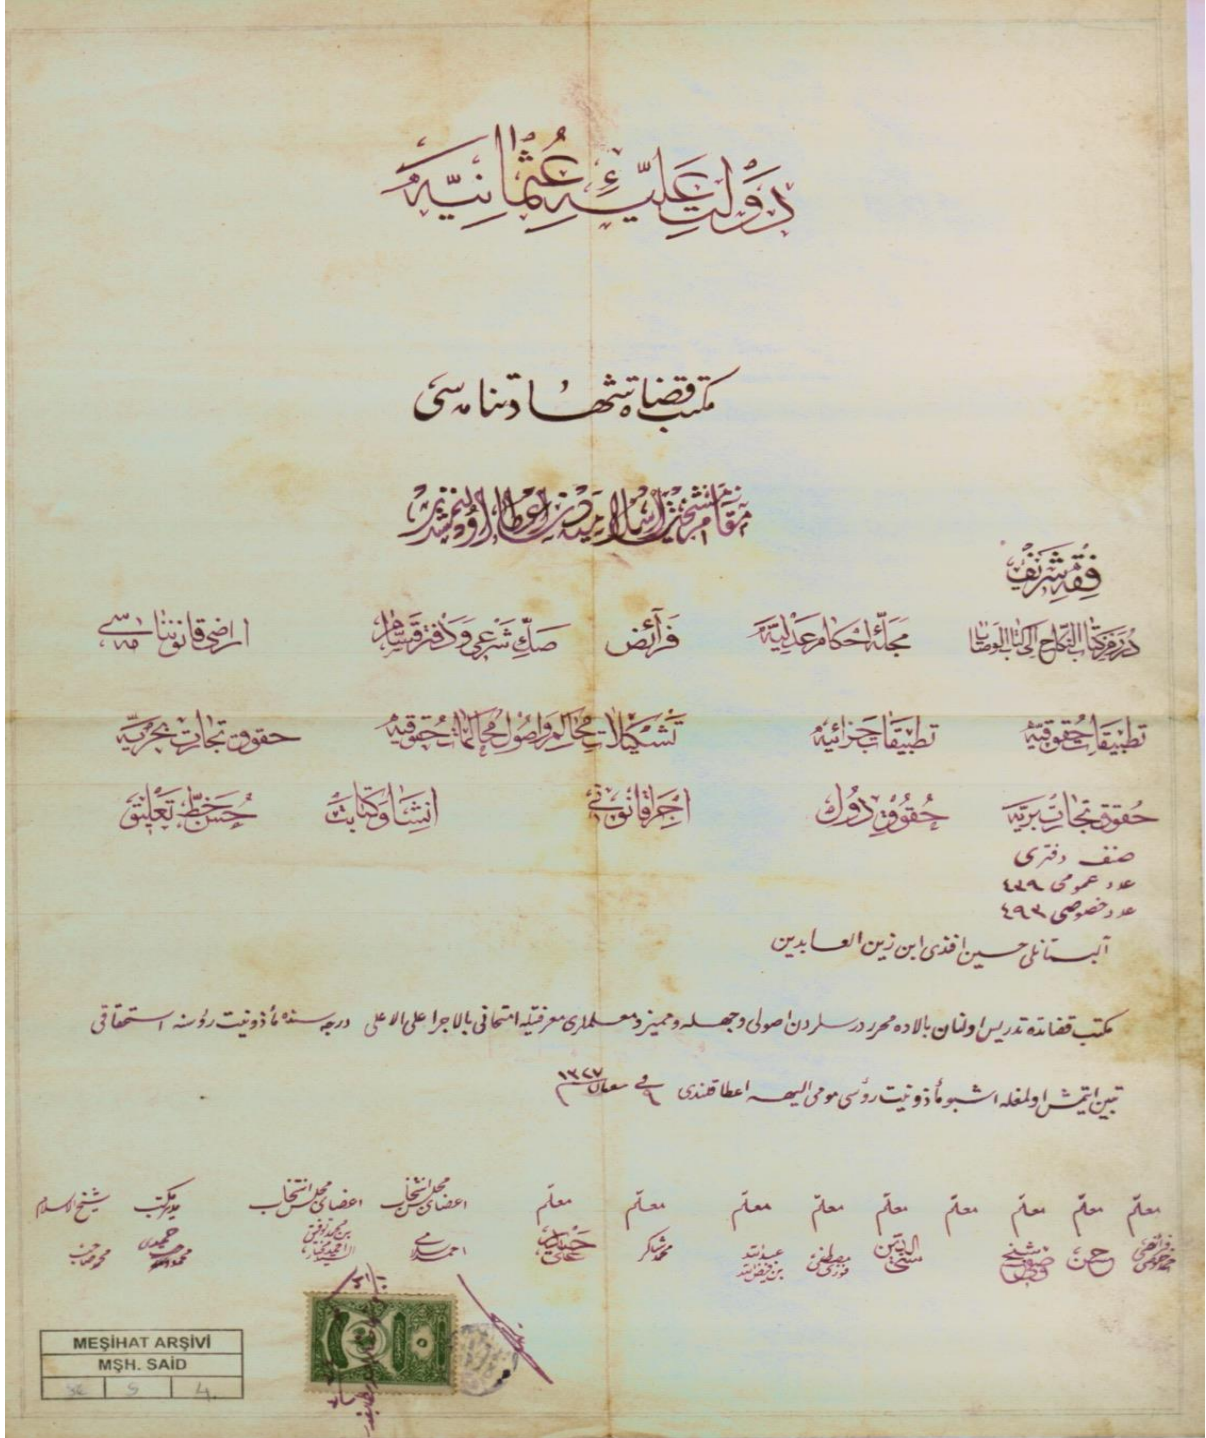 دولت علیۀ عثمانیه
مكتب قضاة شهادتنامه سی
مقام مشیخت اسلامیه دن اعطا اولنمشدر
فقه شریف
درردن كتاب النكاح الی كتاب الوصایا مجلۀ احكام عدلیه فرائض صك شرعی و دفتر قسام اراضی قانوننامه سی
تطبیقات حقوقیه تطبیقات جزائیه تشكیلات محاكم و اصول محاكمات حقوقیه حقوق تجارت بحریه
حقوق تجارت بریه حقوق دول اجرا قانونی انشا و كتابت حسن خط تعلیق
صنف دفتری
عدد عمومی ٤٣٩
عدد خصوصی ٤٩٣
البستانلی حسین افندی ابن زین العابدین
مكتب قضاتده تدریس اولنان بالاده محرر درسلردن اصولی وجهله و ممیز و معلملری معرفتیله امتحانی بالاجرا علی الاعلی درجه سنده مأذونیت رؤسنه استحقاقی
تبین ایتمش اولمغله اشبو مأذونیت رؤسی مومی الیهه اعطا قلندی فی ٩ ١٣٢٧
معلم معلم معلم معلم معلم معلم معلم معلم معلم اعضای مجلس انتخاب اعضای مجلس انتخاب مدیر مكتب شیخ الاسلام
حسن مصطفی فوزی عبد الله بن فیض الله محمد شاكر علی حیدر
٥
MEŞİHAT ARŞİVİ
MŞH. SAİD
5 4